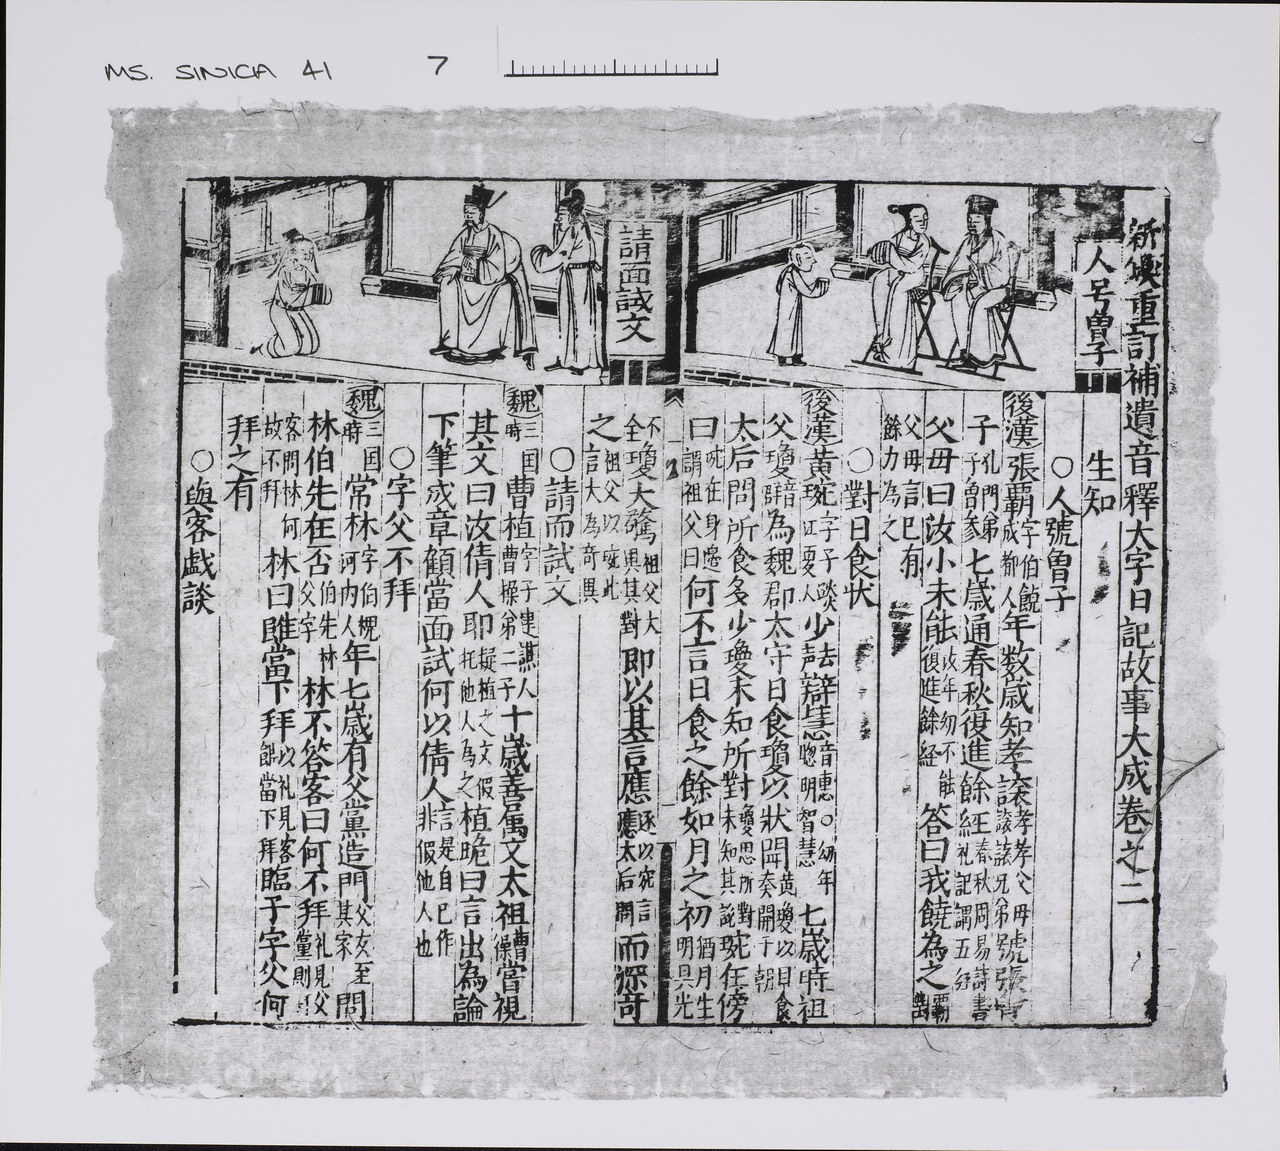 MS. SINICA 41 7
新鍥重訂補遺音釋大字日記故事大成卷之二
人号曽子
請面試文
生知
○人號曾子
後漢張霸字伯饒成都人年数歳知孝讓孝孝父母讓讓兄弟號張曾
子孔門弟子曾參七歳通春秋復進餘経春秋周易詩書礼記謂五経
父母曰汝小未能復進餘経答曰我饒為之
父母言已有餘力為之
○對日食状
後漢黄琬字子琰江夏人少聡辯慧音惠○幼年聰明智慧七歳時祖
父瓊為魏郡太守日食瓊以狀聞黄瓊以日食奏開于朝
太后問所食多少瓊未知所對瓊思所對未知其説琬在傍
曰琬在身邊謂祖父曰何不言日食之餘如月之初猶月生明具光
不全瓊大驚祖父大異其對即以其言應遂以琬言應太后問而深奇
之祖父以琬此言大為奇異
○請面試文
魏三国時曹植字子建譙人曹操弟二子十歳善属文太祖曹操嘗視
其文曰汝倩人即疑植之文假托他人為之植跪曰言出為論
下筆成章顧當面試何以倩人言是自已作非假他人也
○字父不拜
魏三国時常林字伯槐河内人年七歳有父黨造門父友至其家問
林伯先在否伯先林父字林不答客曰何不拜礼見父黨則拜
客問林何故不拜林曰雖當下拜以礼見客雖當下拜臨子字父何
拜之有
○與客戯談